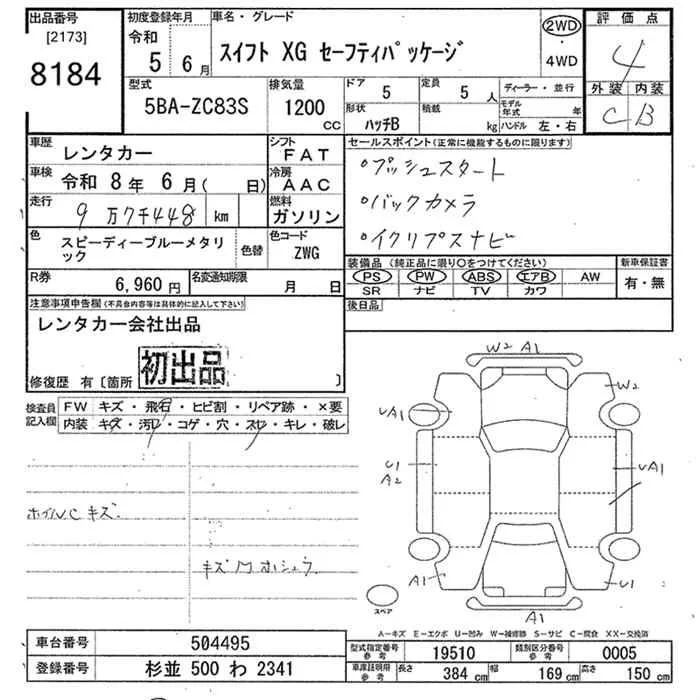 出品番号 初度登録年月 車名・グレード 2WD 評価点
[2173] 令和 ・ 4
8184 5 6月 スイフト XG セーフティパッケージ 4WD 外装 内装
型式 排気量 ドア 5 定員 5人 ディーラー・並行 C B
5BA-ZC83S 1200 CC 形状 ハッチB 積載 kg モデル年式 年
ハンドル 左・右
車歴 レンタカー シフト FAT セールスポイント(正常に機能するものに限ります)
車検 令和 8年 6月( 日) 冷房 AAC ・プッシュスタート
走行 9万7千448 km 燃料 ガソリン ・バックカメラ
色 スピーディーブルーメタリック 色替 色コード ZWG ・イクリプスナビ
装備品 (純正品に限り○をつけてください) 新車保証書
R券 6,960円 名変通知期限 月 日 PS PW ABS エアB AW 有・無
SR ナビ TV カワ
注意事項申告欄(不具合内容等は具体的に記入して下さい) 後日品
レンタカー会社出品
初出品
修復歴 有〔箇所 〕
検査員記入欄 FW キズ・飛石・ヒビ割・リペア跡・×要
内装 キズ・汚レ・コゲ・穴・スレ・キレ・破レ
W2 A1
W2
UA1
U1
A2
UA1
ホイルC キズ
キズ M ホシュウ
A1
U1
スペア
A1
A-キズ E-エクボ U-凹み W-補修跡 S-サビ C-腐食 XX-交換済
車台番号 504495 型式指定番号参考 19510 類別区分番号参考 0005
登録番号 杉並 500 わ 2341 車庫証明用参考 長さ 384 cm 幅 169 cm 高さ 150 cm